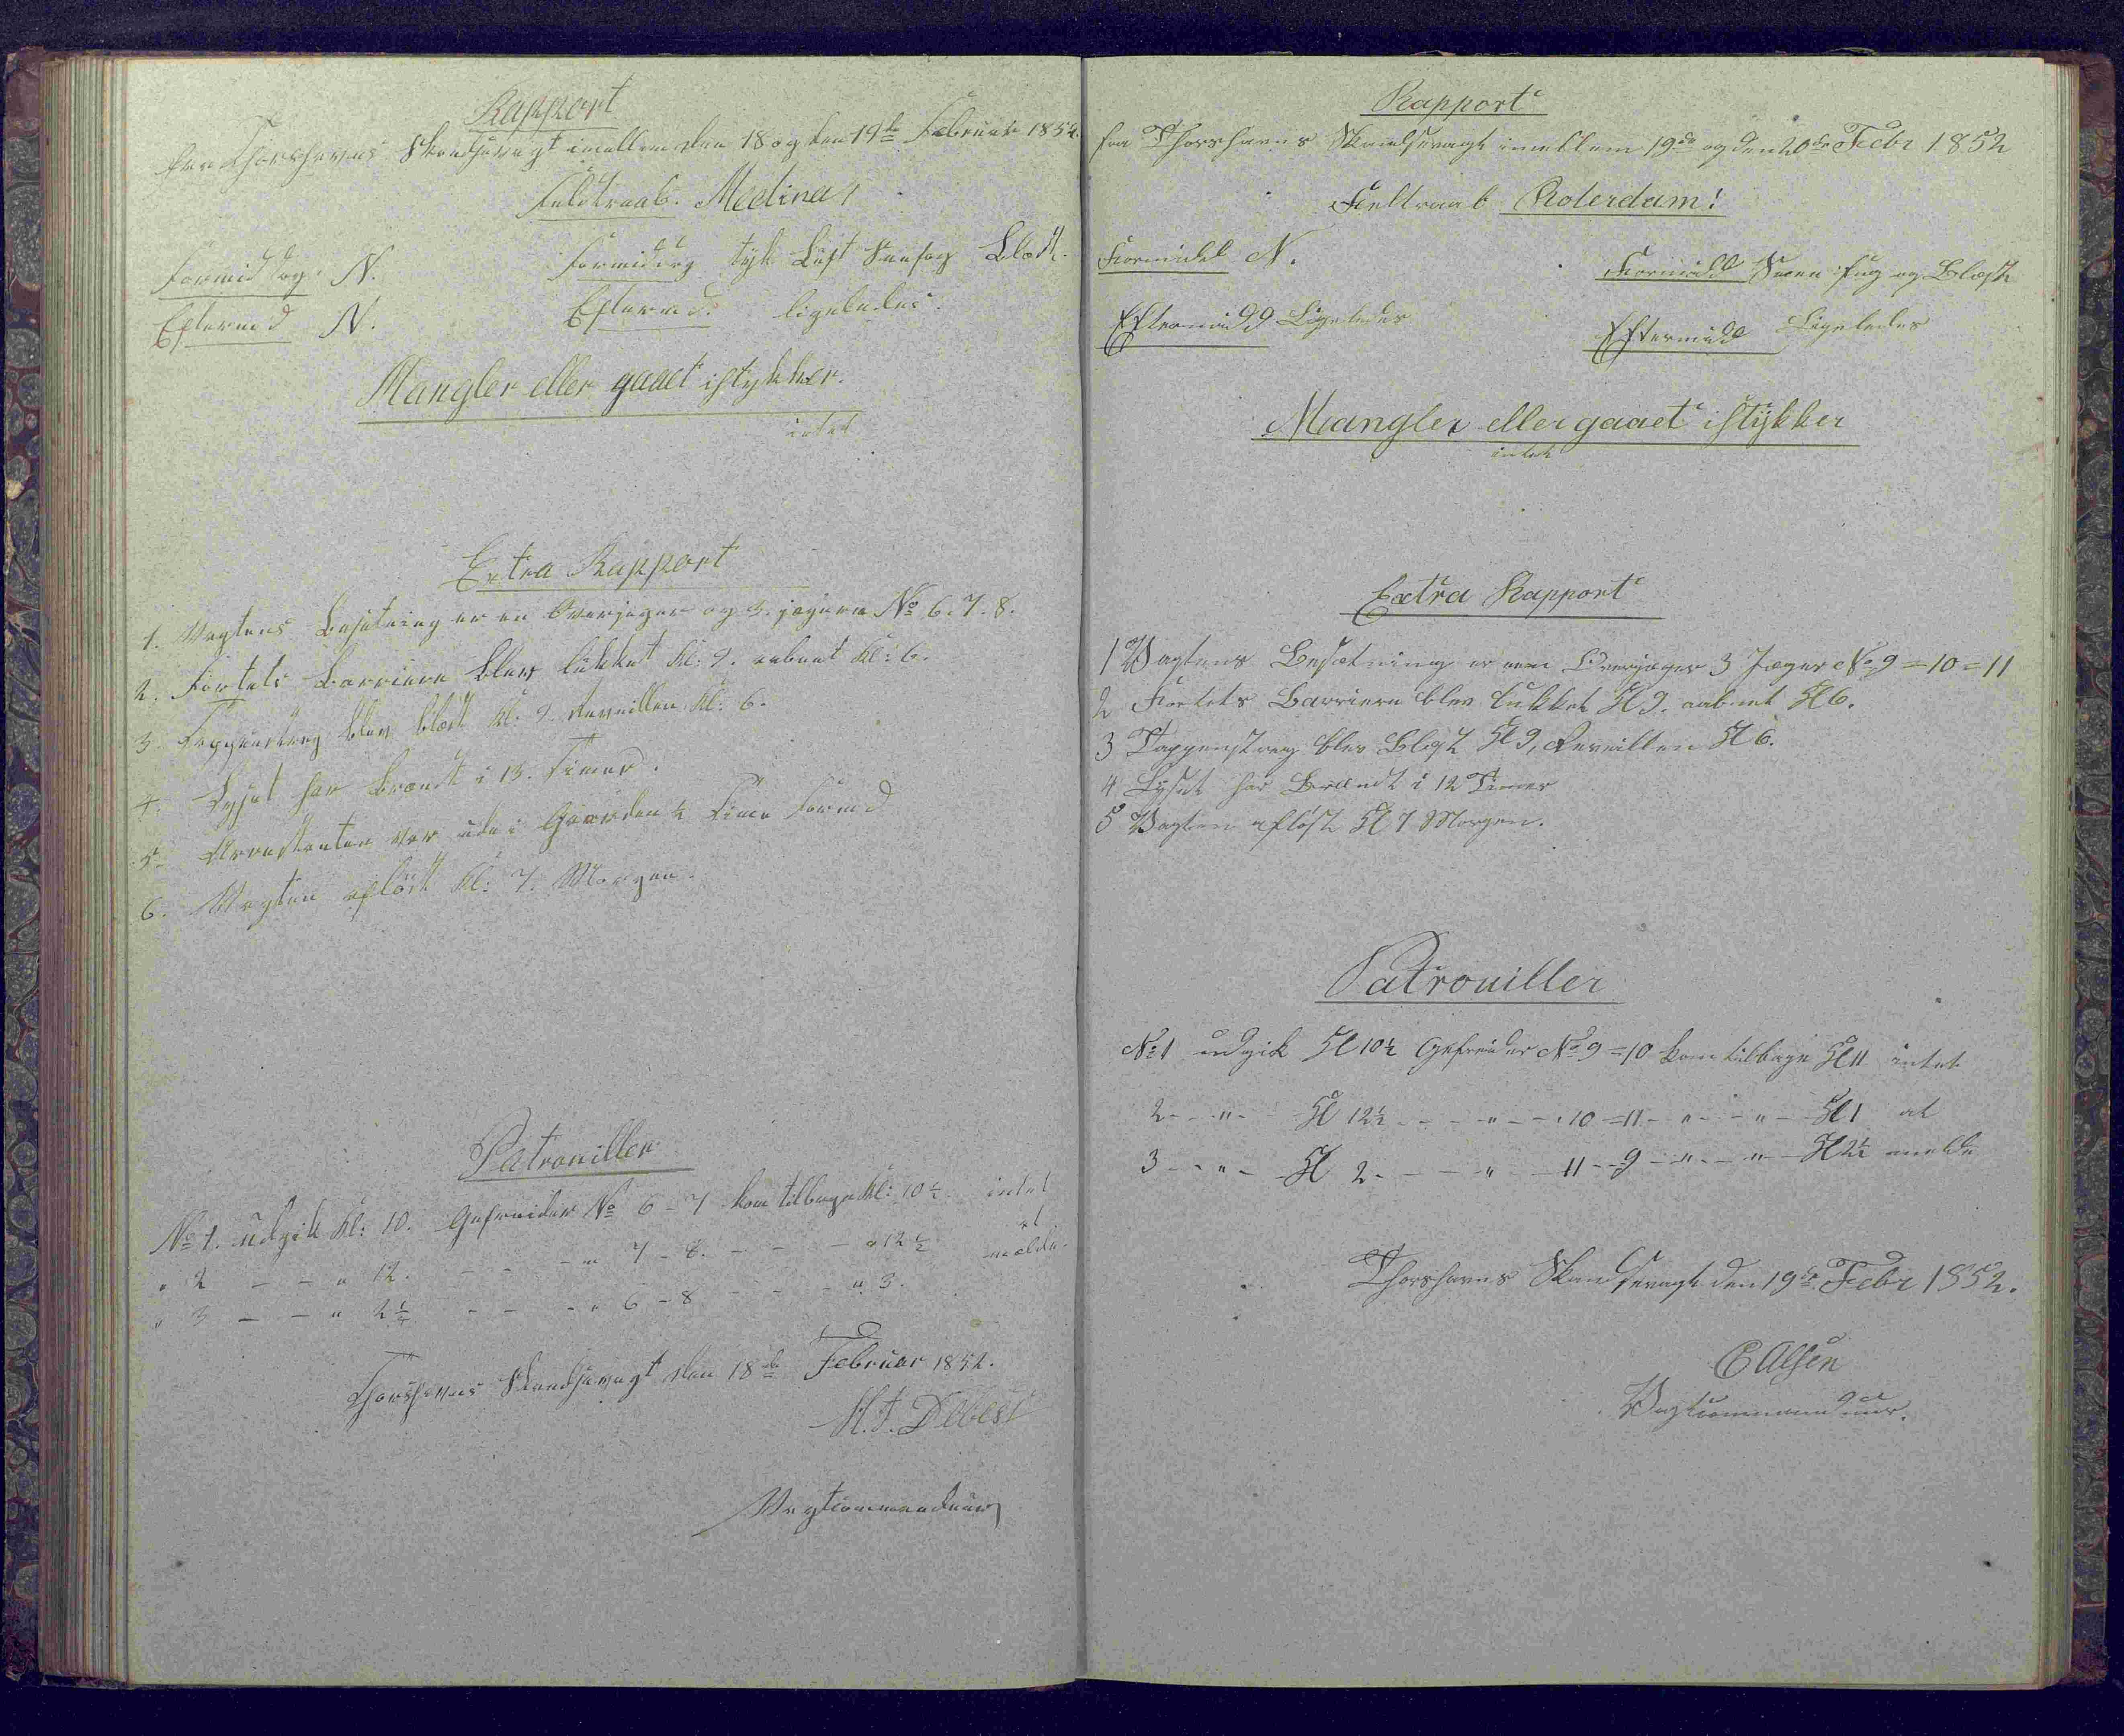 Rapport
fra Thorshavns Skandsevagt imellem den 18 og den 19de Februar 1852.
Feldtraab. Medina!
Formiddag. N.
Formiddag tyk Luft Sneefog Blæst.
Eftermd N.
Eftermd. ligeledes.
Mangler eller gaaet istykker.
intet
Extra Rapport
1. Vagtens Besætning er en Overjæger og 3. jægere No 6. 7. 8.
2. Fortets Barriere blev lukket Kl: 9. aabnet Kl: 6.
3. Tappenstreg blev blæst Kl. 9. Reveillen Kl: 6.
4. Lyset har brændt i 13. Timer.
5. Arrestanten var ude i Gaarden ½ Time Formd
6. Vagten afløst Kl: 7. Morgen.
Patrouiller
No 1. udgik Kl: 10. Gefreider No 6 - 7 kom tilbage Kl: 10½ intet
" 2 - - " 12. - - - " 7 - 8. - - - " 12½ at
" 3 - - " 2½ - - - " 6 - 8 - - - " 3. melde.
Thorshavns Skandsevagt den 18de Februar 1852.
H. J. Debess
Vagtcommandeur
Rapport
fra Thorshavns Skandsevagt imellem 19de og den 20de Febr 1852
Feltraab Roterdam!
Formidd N.
Formidd Sneefug og Blæst
Eftermidd Ligeledes
Eftermidd Ligeledes
Mangler eller gaaet istykker
intet
Extra Rapport
1 Vagtens Besætning er een Overjæger 3 Jæger No 9 = 10 = 11
2 Fortets Barriere blev lukket Kl 9. aabnet Kl 6.
3 Tappenstreg blev Blæst Kl 9, Reveillen Kl 6.
4 Lyset har Brændt i 12 Timer
5 Vagten afløst Kl 7 Morgen.
Patrouiller
No 1 udgik Kl 10½ Gefreider No 9 = 10 kom tilbage Kl 11 intet
2 - " - Kl 12½ - - - " - - 10 = 11 - " - - " - Kl 1 at
3 - " - Kl 2 - - - " - 11 - 9 - " - - " - Kl 2½ melde
Thorshavns Skandsevagt den 19de Febr 1852.
C Olsen
Vagtcommandeur.